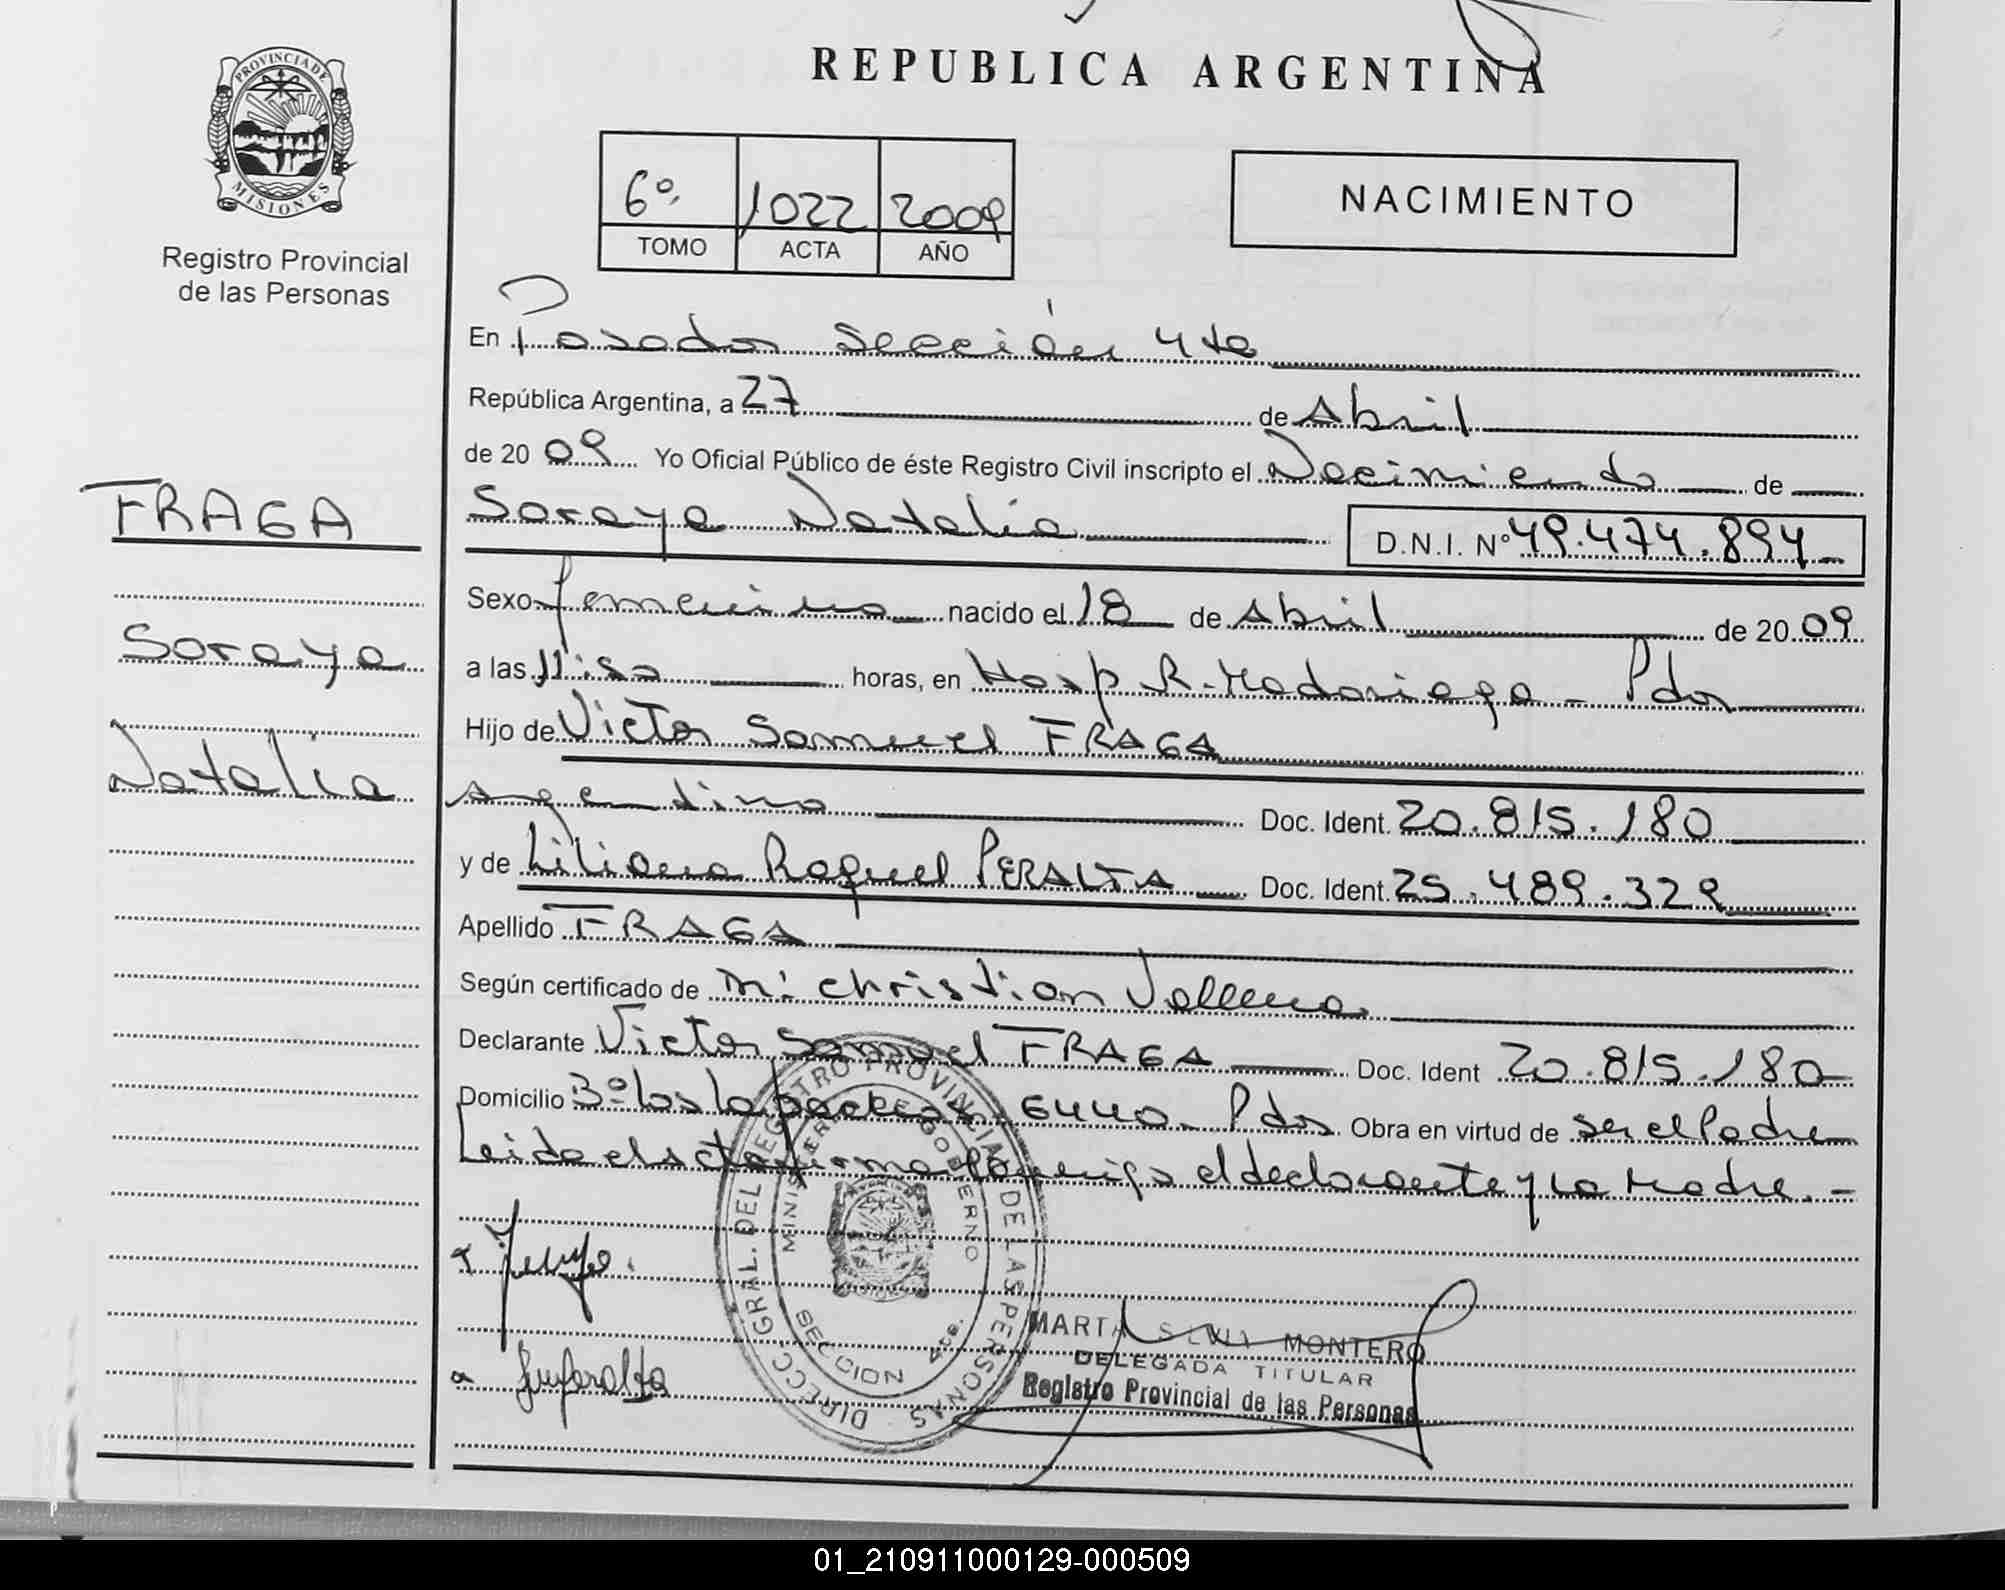 REPUBLICA ARGENTINA
PROVINCIA DE MISIONES
Registro Provincial
de las Personas
6º 1022 2009
TOMO ACTA AÑO
NACIMIENTO
En Posadas Sección 4ta
República Argentina, a 27 de Abril
de 20 09 Yo Oficial Público de éste Registro Civil inscripto el Nacimiento de
FRAGA
Soraya Natalia D.N.I. Nº 49.474.894
Sexo femenino nacido el 18 de Abril de 20 09
Soraya
a las 11:50 horas, en Hosp R. Madariaga - Pdas
Hijo de Victor Samuel FRAGA
Natalia
Argentino Doc. Ident. 20.815.180
y de Liliana Raquel PERALTA Doc. Ident. 25.489.329
Apellido FRAGA
Según certificado de Christian
Declarante Victor Samuel FRAGA Doc. Ident 20.815.180
Domicilio 6440 - Pdas Obra en virtud de ser el Padre
Leida el acta firma conmigo el declarante y la Madre.-
DIRECC. GRAL. DEL REGISTRO PROVINCIAL DE LAS PERSONAS
MINISTERIO DE GOBIERNO
SECCION 4ta.
MARTA MONTERO
DELEGADA TITULAR
Registro Provincial de las Personas
01_210911000129-000509